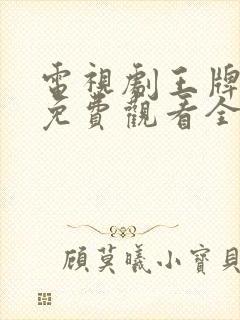 電視劇王牌
免費觀看全
顧莫曦小寶貝